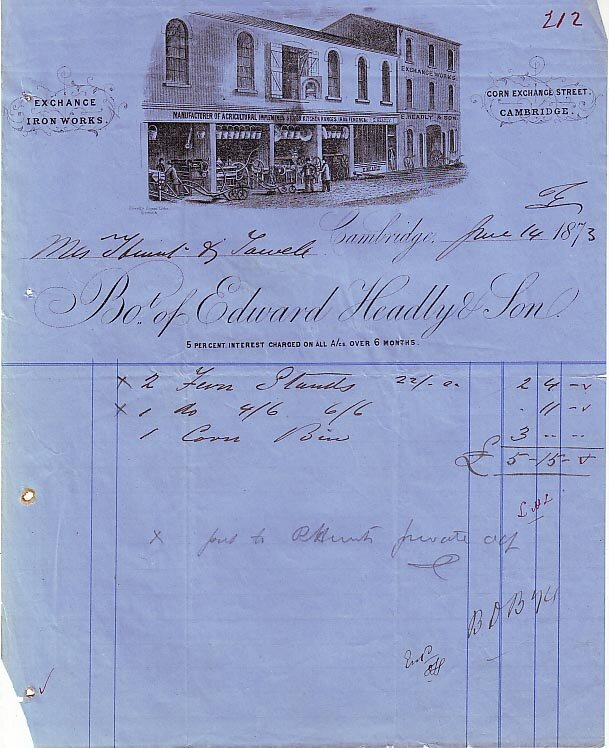 212
EXCHANGE
IRON WORKS.
EXCHANGE WORKS
E. HEADLY & SON
MANUFACTURER OF AGRICULTURAL IMPLEMENTS KITCHEN RANGES
CORN EXCHANGE STREET.
CAMBRIDGE.
Cambridge, June 14 1873
Bot. of Edward Headly & Son
5 PER CENT. INTEREST CHARGED ON ALL A/cs. OVER 6 MONTHS.
x 2 Fern Stands 22/- 2 4 -
x 1 Do 4/6 6/6 . 11 -
1 Corn Bin 3 .. ..
£ 5 - 15 -
x to private